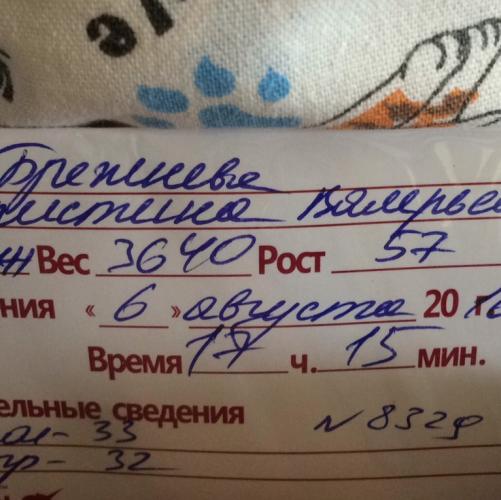 Брежнева
истина Валерьев
ж Вес 3640 Рост 57
ния «6» августа 20
Время 17 ч. 15 мин.
ельные сведения
N 8329
ол- 33
гр- 32